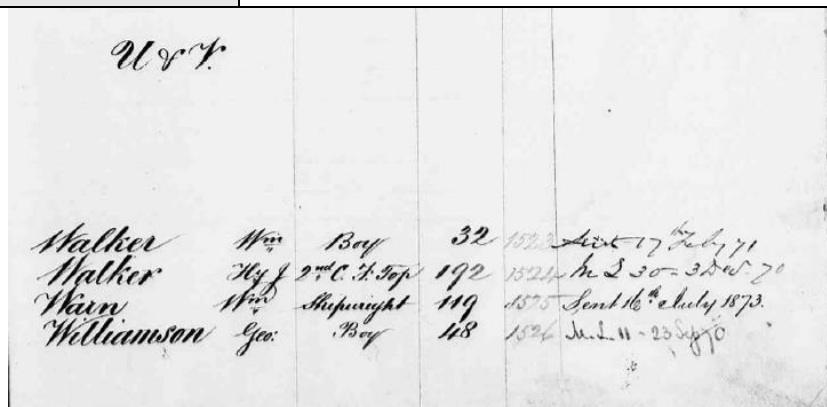 U & V.
Walker Wm Boy 32 1523 Sent 17th Feby 71
Walker Hy J 2nd C. F. Top 192 1524 M L 30 = 3 Dec. 70
Warn Wm Shipwright 119 1525 Sent 16th July 1873.
Williamson Geo: Boy 48 1526 M. L. 11 - 23 Sep 70